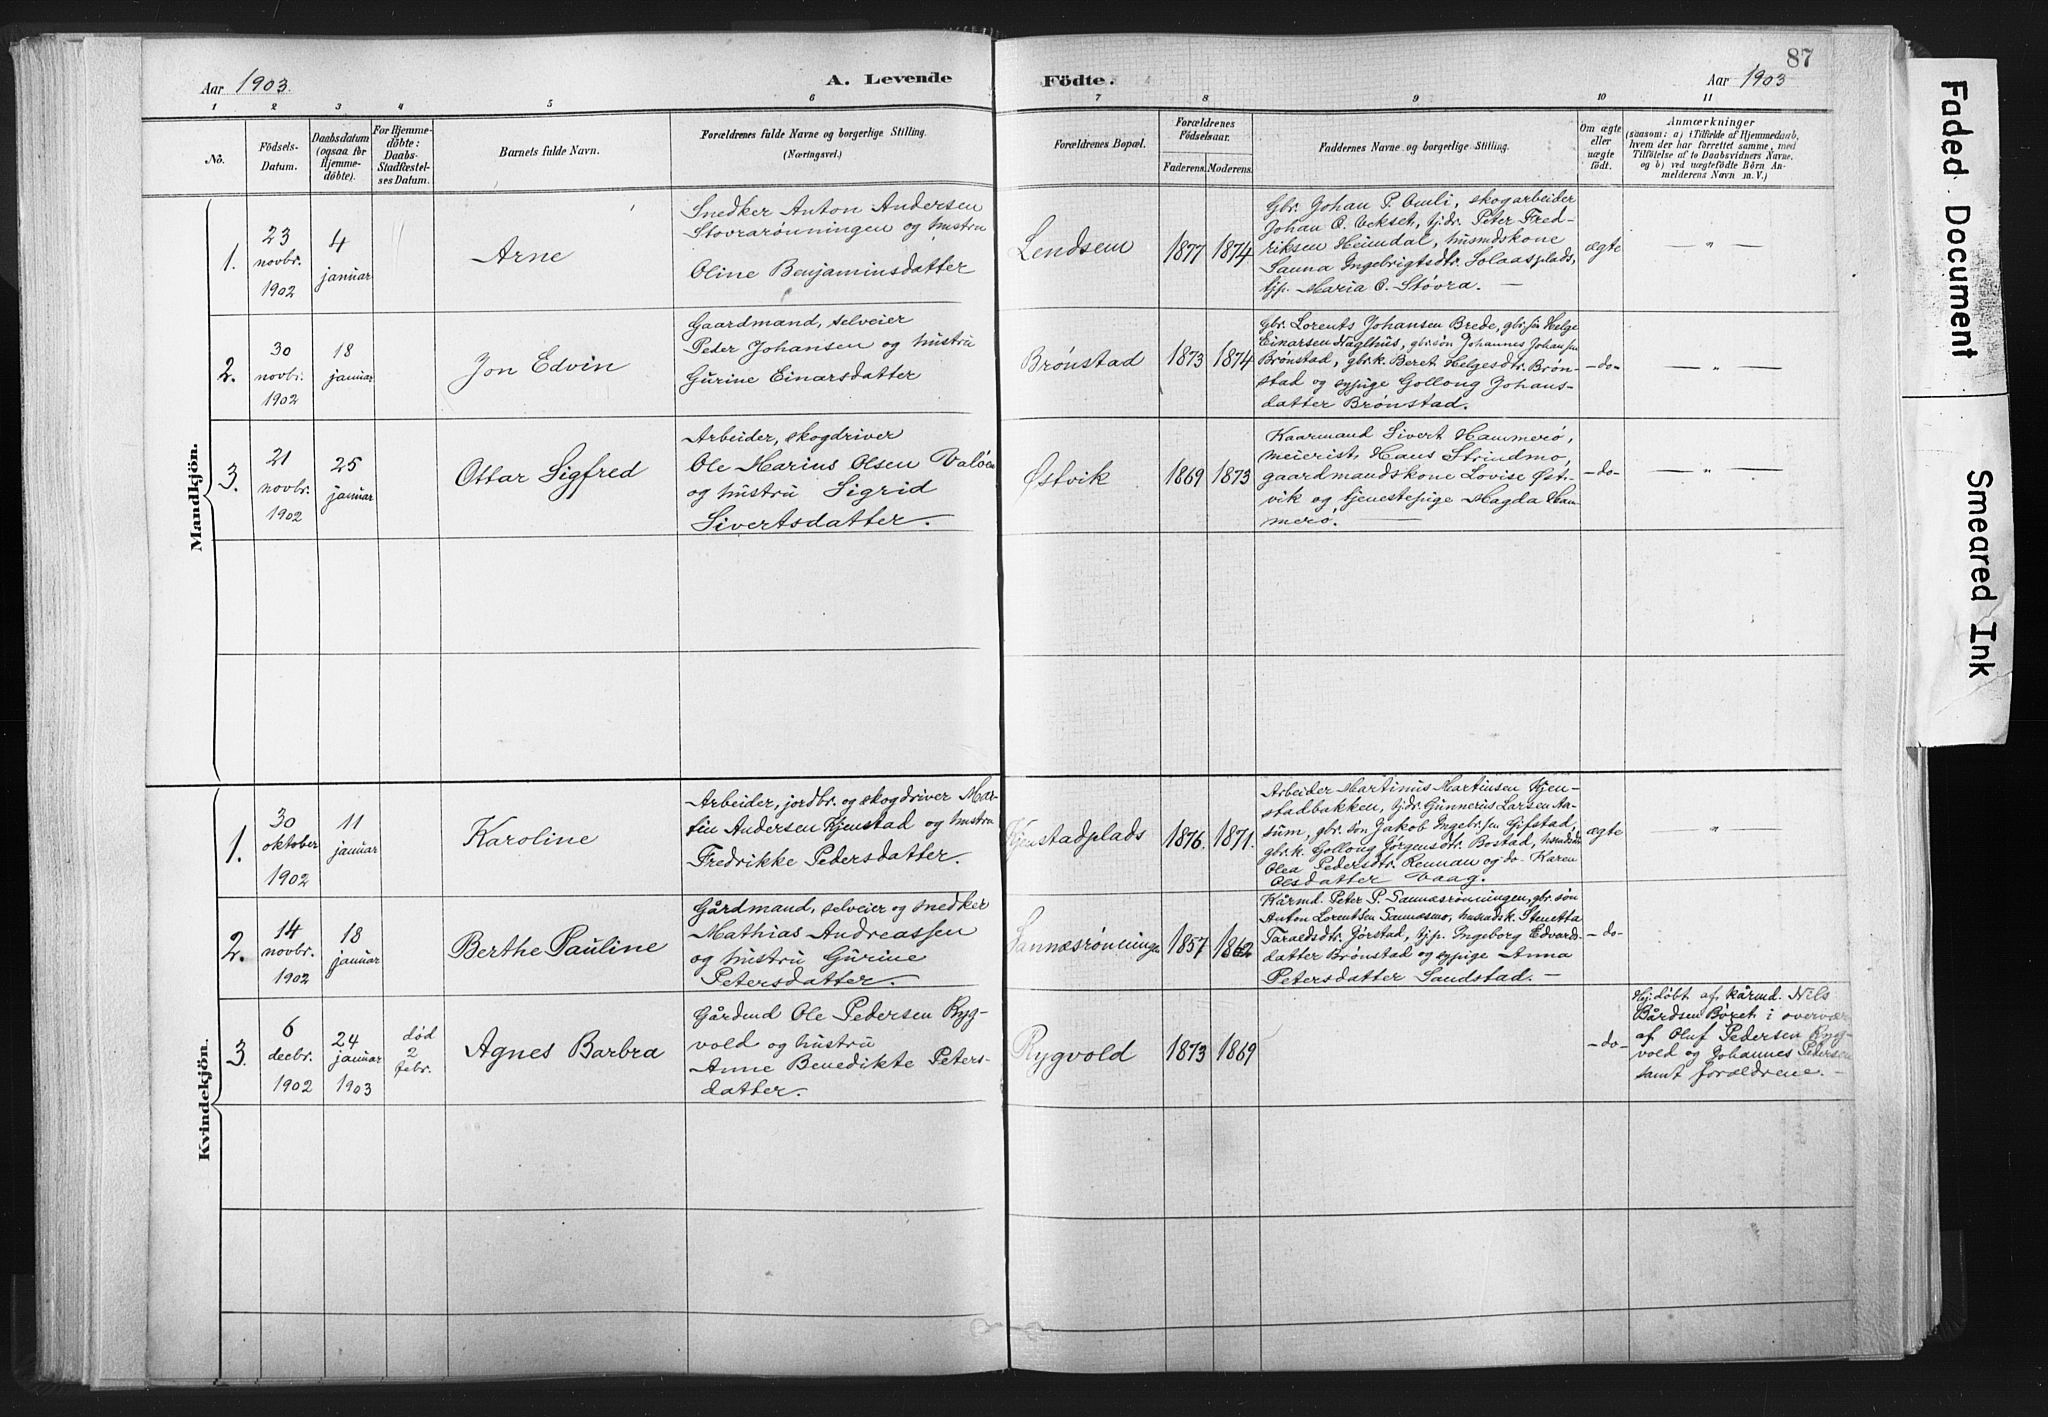 87
Aar 1903.
A. Levende
Födte.
Aar 1903
1 2 3 4 5 6 7 8 9 10 11
No.
Födsels-
Datum.
Daabsdatum
(ogsaa for
Hjemme-
döbte).
For Hjemme-
döbte:
Daabs-
Stadfæstel-
ses Datum.
Barnets fulde Navn.
Forældrenes fulde Navne og borgerlige Stilling.
(Næringsvei.)
Forældrenes Bopæl.
Forældrenes
Födselsaar.
Faderens. Moderens.
Faddernes Navne og borgerlige Stilling.
Om ægte
eller
uægte
födt.
Anmærkninger
(saasom: a) i Tilfælde af Hjemmedaab,
hvem der har forrettet samme, med
Tilföielse af to Daabsvidners Navne,
og b) ved uægtefödte Börn An-
melderens Navn m. V.)
Mandkjön.
1.
23
novbr.
1902
4
januar
Arne
Snedker Anton Andersen
Stovrarønningen og hustru
Oline Benjaminsdatter
Lendsem
1877
1874
Gbr. Johan P. Amli, skogarbeider
Johan O. Vekset, tjdr. Peter Fred-
riksen Heimdal, husmdskone
Sauna Ingebrigtsdtr. Solaasplads,
tjp. Maria O. Støvra. —
ægte
— " —
2.
30
novbr.
1902
18
januar
Jon Edvin
Gaardmand, selveier
Peder Johansen og hustru
Gurine Einarsdatter
Brønstad
1873
1874
Gbr. Lorents Johansen Brede, gbr. søn Helge
Einarsen Haglhus, gbr. søn Johannes Johansen
Brønstad, gbr.k. Beret Helgesdtr. Brøn-
stad og sypige Gollong Johans-
datter Brønstad.
— do —
— " —
3.
21
novbr.
1902
25
januar
Ottar Sigfred
Arbeider, skogdriver
Ole Marius Olsen Valøen
og hustru Sigrid
Sivertsdatter.
Østvik
1869
1873
Kaarmand Sivert Hammerø,
meierist Hans Strindmo,
gaardmandskone Lovise Øst-
vik og tjenestepige Magda Ham-
merø. —
— do —
— " —
Kvindekjön.
1.
30
oktober
1902
11
januar
Karoline
Arbeider, jordbr. og skogdriver Mar-
tin Andersen Kjenstad og hustru
Fredrikke Pedersdatter.
Kjenstadplads
1876
1871.
Arbeider Martinus Martinsen Kjen-
stadbakken, tjdr. Gunnerius Larsen Aa-
sum, gbr. søn Jakob Ingebr.sen Gifstad,
gbr.k. Gollong Jørgensdtr. Bostad,
Olea Pedersdtr. Rennan og do. Karen
Olsdatter Vaag.
ægte
"
2.
14
novbr.
1902
18
januar
Berthe Pauline
Gårdmand, selveier og snedker
Mathias Andreassen
og hustru Gurine
Petersdatter.
Sannæsrønningen
1857
1862
Kårmd. Peter P. Sannæsrønningen, gbr. søn
Anton Lorentsen Sannæsmo, husmdsk. Stenetta
Taraldsdtr. Jørstad, tjp. Ingeborg Edvards-
datter Brønstad og sypige Anna
Petersdatter Sandstad. —
— do —
3.
6
decbr.
1902
24
januar
1903
død
2
febr.
Agnes Barbra
Gårdmd Ole Pedersen Ryg-
vold og hustru
Anne Benedikte Peters-
datter.
Rygvold
1873
1869
— do —
Hj. døbt af kårmd. Nils
Bårdsen Børet i overvær
af Oluf Pedersen Ryg-
vold og Johannes Petersen
samt forældrene. —
Faded Document
Smeared Ink